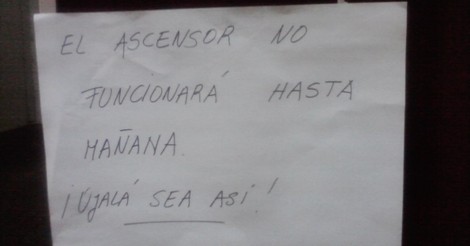 EL ASCENSOR NO
FUNCIONARÁ HASTA
MAÑANA.
¡ÚJALÁ SEA ASÍ!